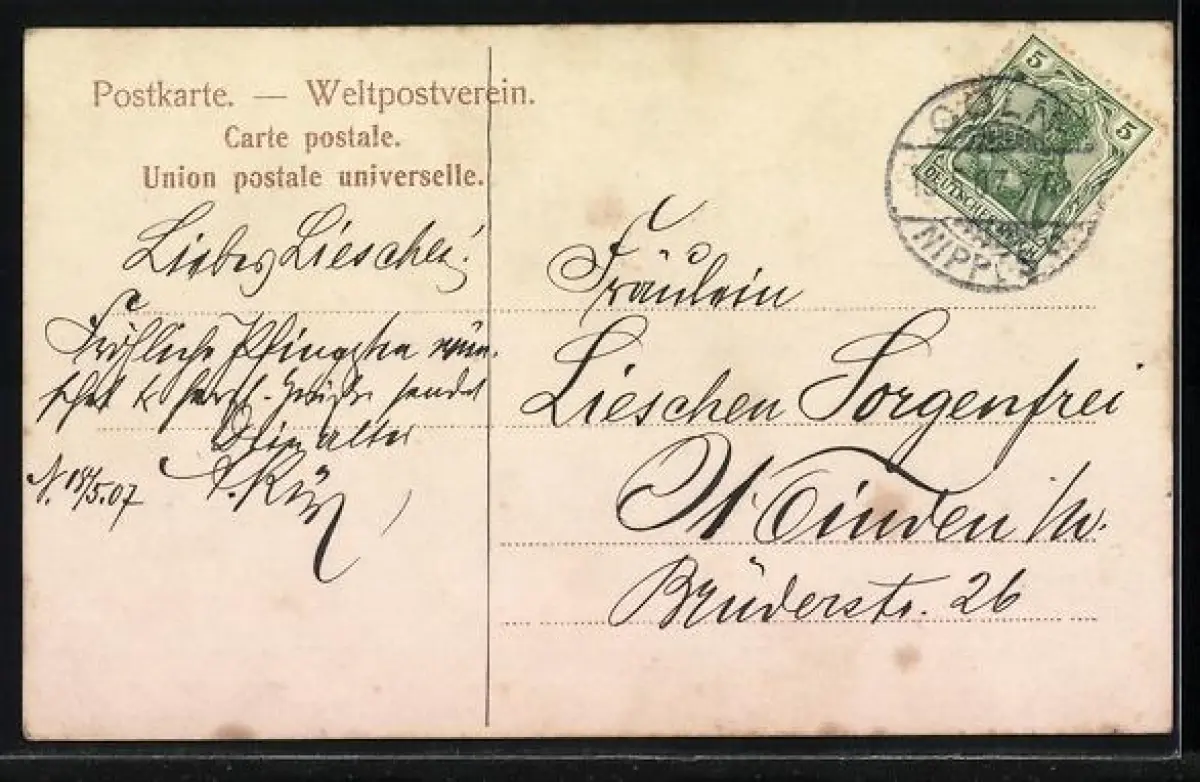 Postkarte. — Weltpostverein.
Carte postale.
Union postale universelle.
Liebes Lieschen!
Fröhliche Pfingsten wün-
schet & herzl. Grüße sendet
Dein alter
N. 18/5.07
Fräulein
Lieschen Sorgenfrei
Minden i/w.
Brüderstr. 26
5
5
DEUTSCHES REICH
CÖLN
NIPPES